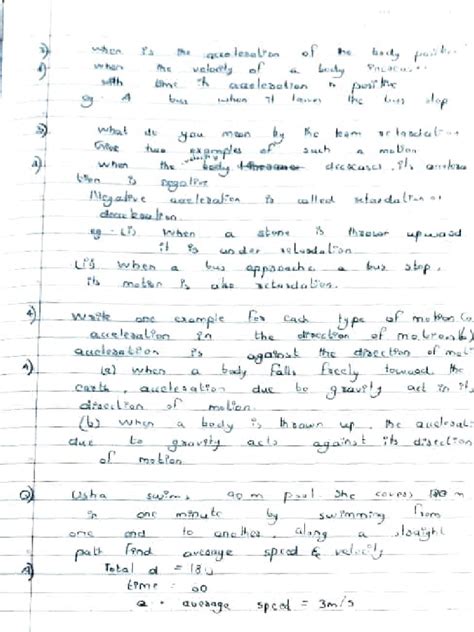 2) when is the acceleration of the body positive
A) when the velocity of a body increases
with time its acceleration is positive
eg. A bus when it leaves the bus stop
3) what do you mean by the team retardation
Give two examples of such a motion
A) when the velocity decreases, its accelera
tion is negative
Negative acceleration is called retardation or
deceleration
eg. (i) When a stone is thrown upward
it is under retardation
(ii) When a bus approache a bus stop,
its motion is also retardation.
4) Write one example for each type of motion (a)
acceleration in the direction of motion (b)
acceleration is against the direction of moti
A) (a) when a body falls freely toward the
earth, acceleration due to gravity act in its
direction of motion
(b) when a body is thrown up, the accelerati
due to gravity acts against its direction
of motion
Q) Usha swims 90 m pool. She covers 180 m
in one minute by swimming from
one end to another, along a straight
path find average speed & velocity
A) Total d = 180
time = 60
average speed = 3m/s